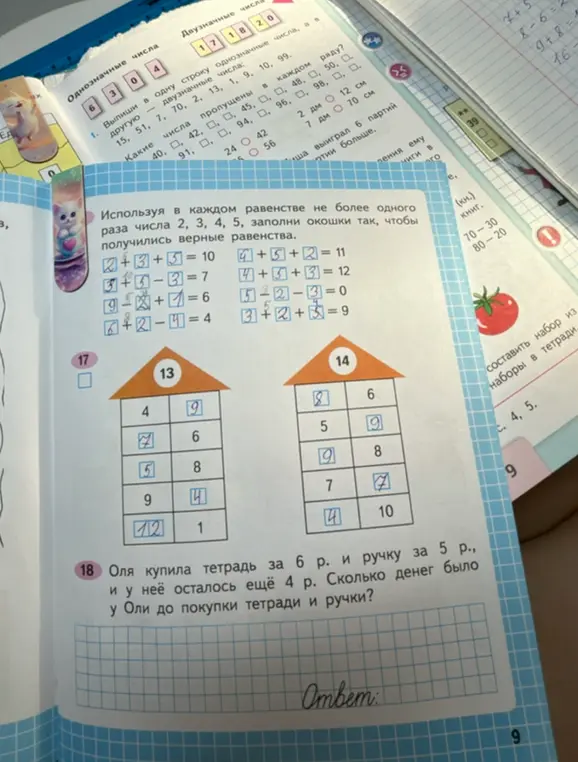 Однозначные числа
Двузначные числа
6 3 0 4
17 18 20
1. Выпиши в одну строку однозначные числа, а в
другую — двузначные числа:
15, 51, 7, 70, 2, 13, 1, 9, 10, 99.
Какие числа пропущены в каждом ряду?
40, □, 42, □, □, 45, □, □, 48, □, 50, □
91, □, □, 94, □, 96, □, 98, □, □
24 ○ 42
2 дм ○ 12 см
○ 56
7 дм ○ 70 см
выиграл 6 партий
больше.
ему
(кн.)
книг.
70 − 30
80 − 20
39
составить набор из
наборы в тетради
4, 5.
9
7+5
Используя в каждом равенстве не более одного
раза числа 2, 3, 4, 5, заполни окошки так, чтобы
получились верные равенства.
2 + 3 + 5 = 10
4 + 5 + 2 = 11
5 + 5 − 3 = 7
4 + 5 + 3 = 12
9 − 2 + 1 = 6
5 − 2 − 3 = 0
6 + 2 − 4 = 4
3 + 2 + 5 = 9
17
13
4 9
7 6
5 8
9 4
12 1
14
8 6
5 9
9 8
7 7
4 10
18 Оля купила тетрадь за 6 р. и ручку за 5 р.,
и у неё осталось ещё 4 р. Сколько денег было
у Оли до покупки тетради и ручки?
Ответ:
9